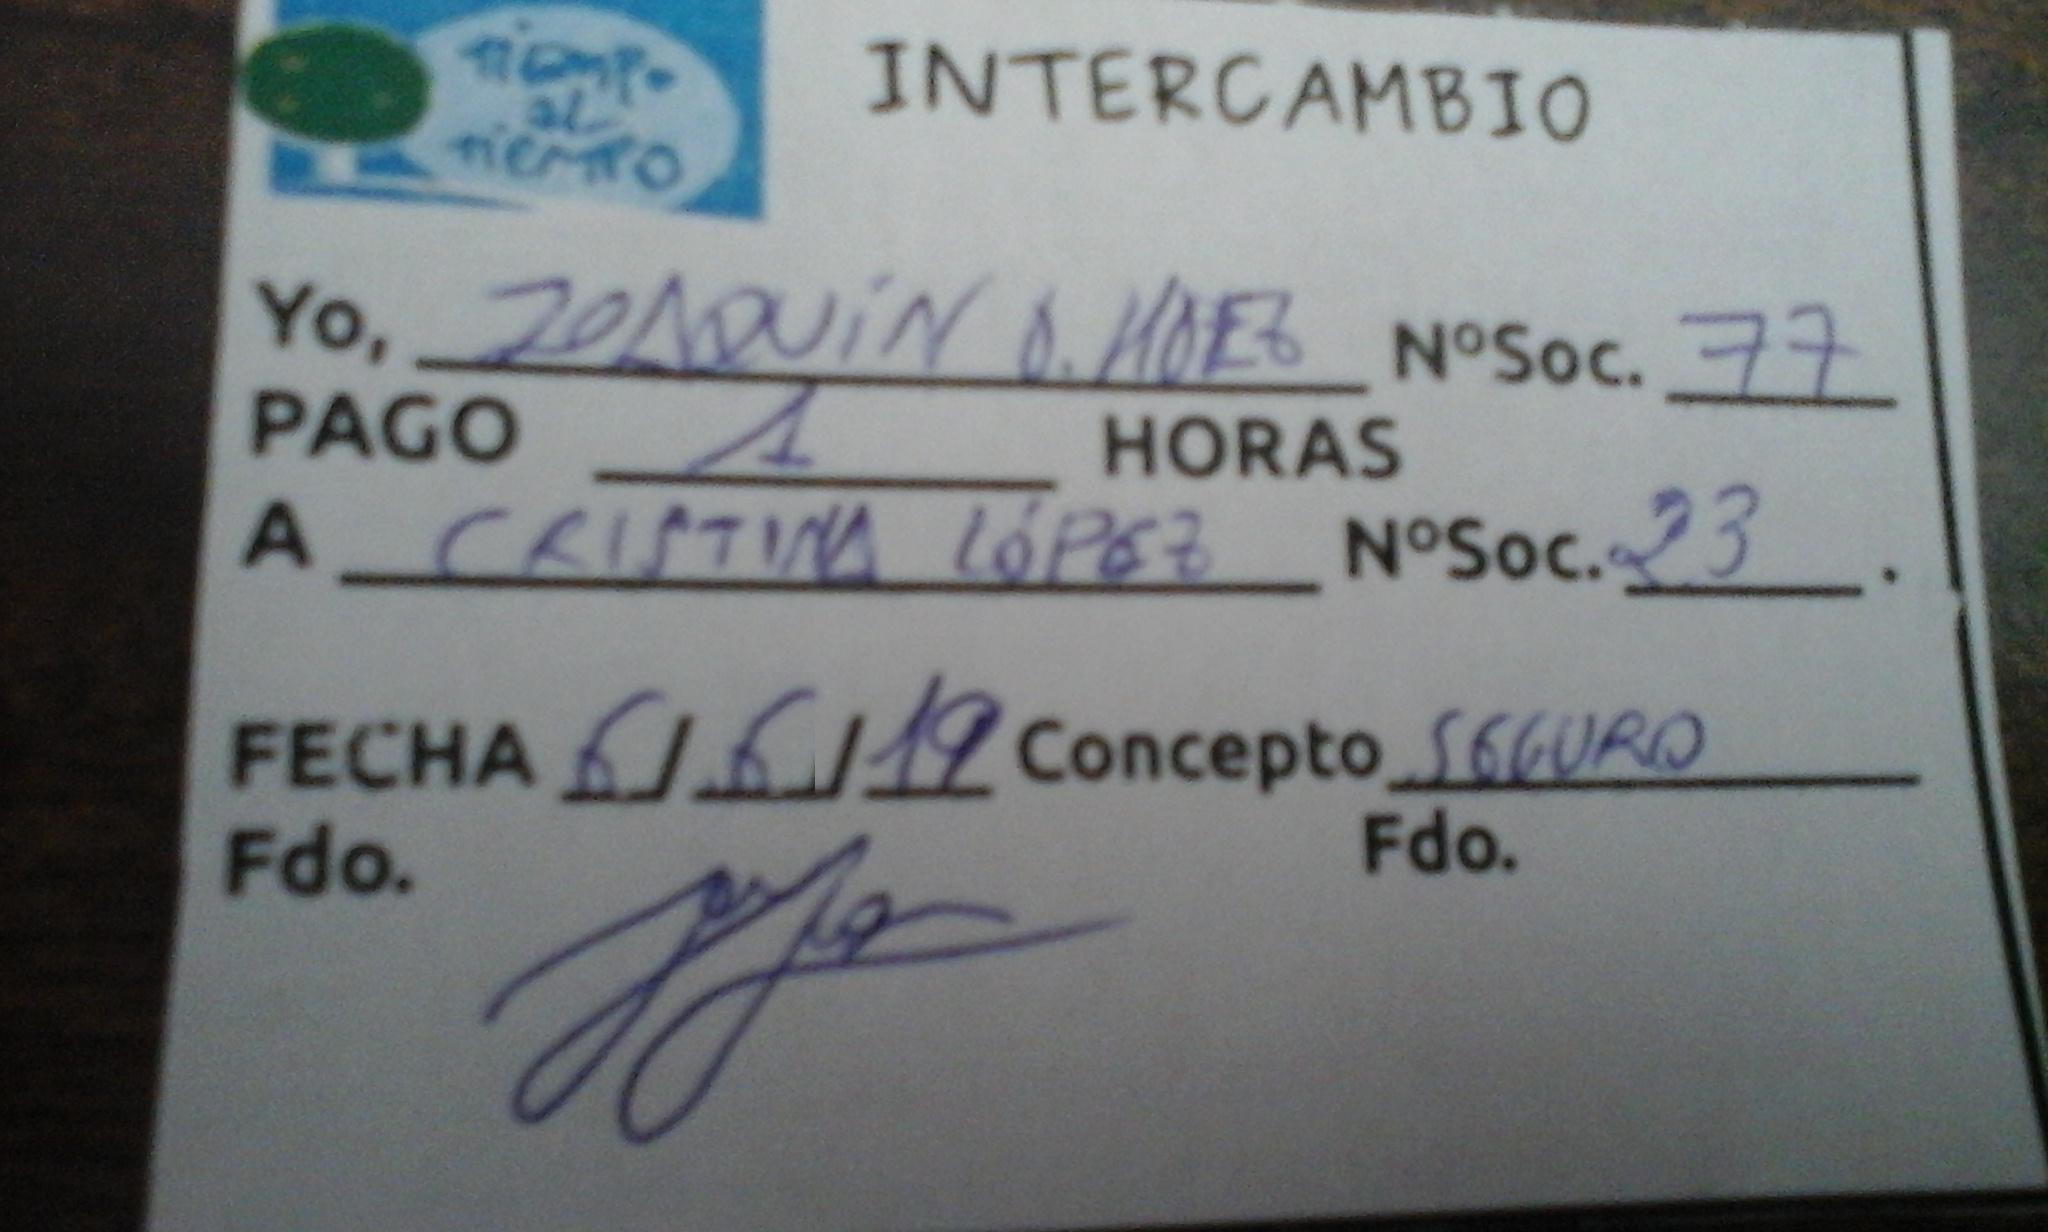 Tiempo
al
Tiempo
INTERCAMBIO
Yo, JOAQUÍN NºSoc. 77
PAGO 1 HORAS
A CRISTINA LÓPEZ NºSoc. 23.
FECHA 6/6/19 Concepto SEGURO
Fdo. Fdo.